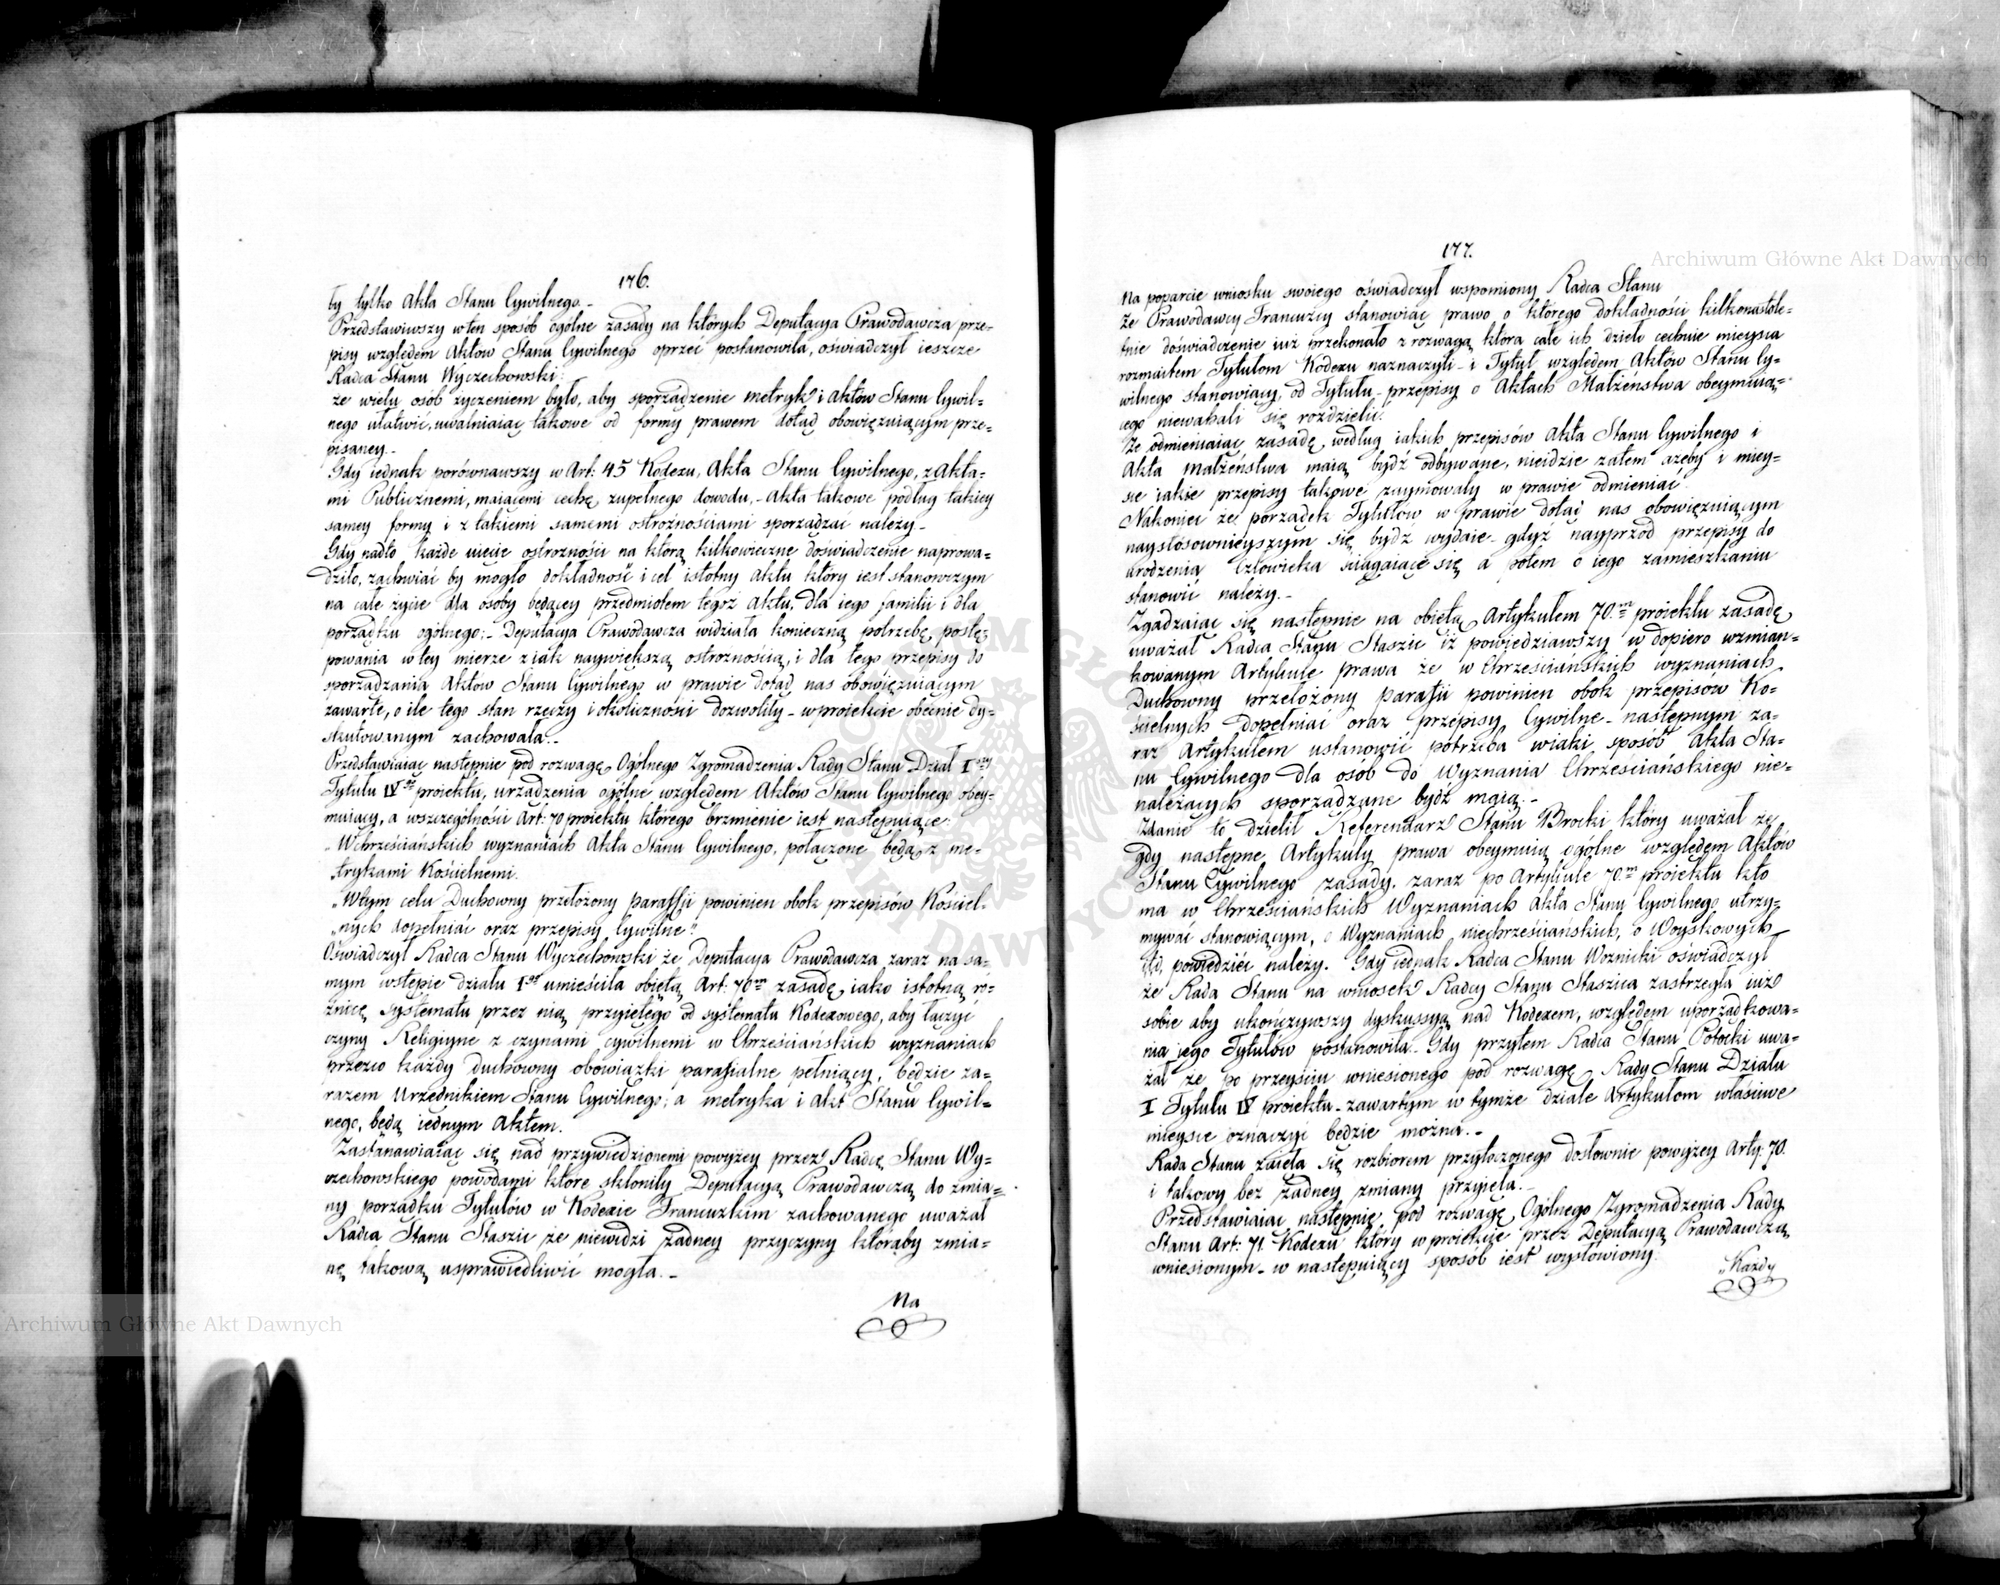 176.
ty tylko Akta Stanu Cywilnego.-
Przedstawiwszy wten sposób ogólne zasady na których Deputacya Prawodawcza prze-
pisy względem Aktów Stanu Cywilnego oprzeć postanowiła, oświadczył ieszcze
Radca Stanu Wyczechowski:
że wielu osób życzeniem było, aby sporządzenie metryk i Aktów Stanu Cywil-
nego ułatwić, uwalniaiąc takowe od formy prawem dotąd obowiązuiącym prze-
pisaney.-
Gdy iednak porównawszy w Art: 45 Kodexu, Akta Stanu Cywilnego, z Akta-
mi Publicznemi, maiącemi cechę zupełnego dowodu,- Akta takowe podług takiey
samey formy i z takiemi samemi ostrożnościami sporządzać należy.-
Gdy nadto każde uięcie ostrożności na którą kilkowieczne doświadczenie naprowa-
dziło, zachwiać by mogło dokładność i cel istotny Aktu który iest stanowczym
na całe życie dla osoby będącey przedmiotem tegoż Aktu, dla iego familii i dla
porządku ogólnego;- Deputacya Prawodawcza widziała konieczną potrzebę postę-
powania w tey mierze z iak naywiększą ostrożnością, i dla tego przepisy do
sporządzania Aktów Stanu Cywilnego w prawie dotąd nas obowięzuiącym
zawarte, o ile tego stan rzeczy i okoliczności dozwoliły - w proiekcie obecnie dy-
skutowanym zachowała.-
Przedstawiaiąc następnie pod rozwagę Ogólnego Zgromadzenia Rady Stanu Dział I szy
Tytułu IV go proiektu, urządzenia ogólne względem Aktów Stanu Cywilnego obey-
muiący, a wszczególności Art: 70 proiektu którego brzmienie iest następuiące:
„Wchrześciańskich wyznaniach Akta Stanu Cywilnego, połączone będą z me-
trykami Kościelnemi.
„Wtym celu Duchowny przełożony Paraffii powinien obok przepisów Kościel-
„nych dopełniać oraz przepisy Cywilne"
Oświadczył Radca Stanu Wyczechowski że Deputacya Prawodawcza zaraz na sa-
mym wstępie działu I go umieściła obiętą Art: 70 m zasadę iako istotną ró-
żnicę systematu przez nią przyiętego od systematu Kodexowego, aby łączyć
czyny Religiyne z czynami cywilnemi w Chrześciańskich wyznaniach
przezco każdy duchowny obowiązki parafialne pełniący, będzie za-
razem Urzędnikiem Stanu Cywilnego; a metryka i Akt Stanu Cywil-
nego, będą iednym Aktem.
Zastanawiaiąc się nad przywiedzionemi powyżey przez Radcę Stanu Wy-
czechowskiego powodami które skłoniły Deputacyą Prawodawczą do zmia-
ny porządku Tytułów w Kodexie Francuzkim zachowanego uważał
Radca Stanu Staszic że niewidzi żadney przyczyny któraby zmia-
nę takową usprawiedliwić mogła.-
Na
177.
Na poparcie wniosku swoiego oświadczył wspomiony Radca Stanu
Że Prawodawcy Francuzcy stanowiąc prawo o którego dokładności kilkonastole-
tnie doświadczenie iuż przekonało z rozwagą która całe ich dzieło cechuie mieysca
rozmaitem Tytułom Kodexu naznaczyli - i Tytuł względem Aktów Stanu Cy-
wilnego stanowiący, od Tytułu - przepisy o Aktach Małżeństwa obeymuią-
cego niewahali się rozdzielić.
Że odmieniaiąc zasadę, według iakich przepisów Akta Stanu Cywilnego i
Akta małżeństwa maią bydź odbywane, nieidzie zatem ażeby i miey-
sce iakie przepisy takowe zaymowały w prawie odmieniać
Nakoniec że porządek Tytułów w prawie dotąd nas obowięzuiącym
naystósownieyszym się bydź wydaie - gdyż nayprzód przepisy do
urodzenia Człowieka ściągaiące się a potem o iego zamieszkaniu
stanowić należy.-
Zgadzaiąc się następnie na obiętą Artykułem 70.m proiektu zasadę,
uważał Radca Stanu Staszic iż powiedziawszy w dopiero wzmian-
kowanym Artykule prawa że w Chrześciańskich wyznaniach
Duchowny przełożony parafii powinien obok przepisów Ko-
ścielnych dopełniać oraz przepisy Cywilne - następnym za-
raz Artykułem ustanowić potrzeba wiaki sposób Akta Sta-
nu Cywilnego dla osób do Wyznania Chrześciańskiego nie-
należących sporządzane bydź maią.-
Zdanie to dzielił Referendarz Stanu Brocki który uważał że
gdy następne Artykuły prawa obeymuią ogólne względem Aktów
Stanu Cywilnego zasady. zaraz po Artykule 70.m proiektu kto
ma w Chrześciańskich Wyznaniach Akta Stanu Cywilnego utrzy-
mywać stanowiącym, o Wyznaniach niechrześciańskich, o Woyskowych
itd. powiedzieć należy. Gdy iednak Radca Stanu Woznicki oświadczył
że Rada Stanu na wniosek Radcy Stanu Staszica zastrzegła iuż
sobie aby ukończywszy dyskussyą nad Kodexem, względem uporządkowa-
nia iego Tytułów postanowiła - Gdy przytem Radca Stanu Potocki uwa-
żał że po przeyściu wniesionego pod rozwagę Rady Stanu Działu
I Tytułu IV proiektu - zawartym w tymże dziale Artykułom właściwe
mieysce oznaczyć będzie można.-
Rada Stanu zaięła się rozbiorem przytoczonego dosłownie powyżey Arty: 70.
i takowy bez żadney zmiany przyięła.-
Przedstawiaiąc następnie pod rozwagę Ogólnego Zgromadzenia Rady
Stanu Art: 71 Kodexu który w proiekcie przez Deputacyą Prawodawczą
wniesionym - w następuiący sposób iest wysłowiony:
„Każdy
Archiwum Główne Akt Dawnych
Archiwum Główne Akt Dawnych